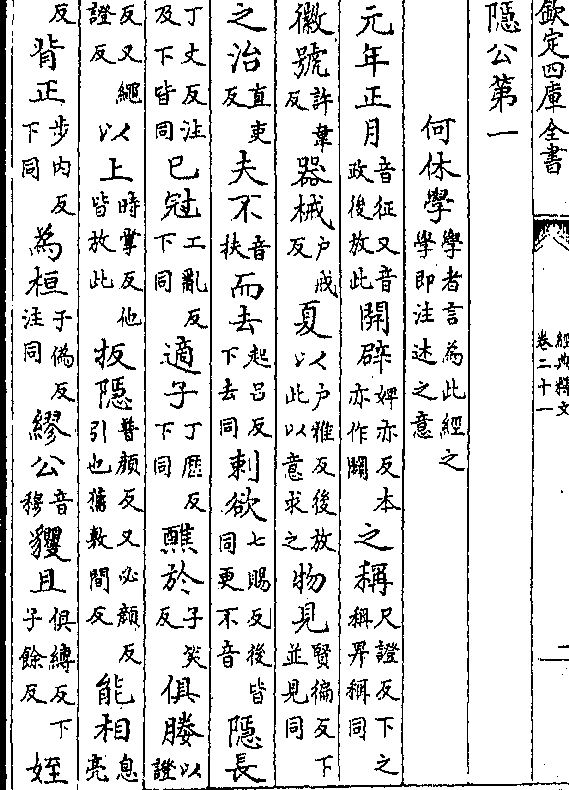 欽定四庫全書
經典釋文
卷二十一
隱公第一
何休學學者言為此經之學即注述之意
元年正月音征又音政後放此開辟婢亦反本亦作闢之稱尺證反下之稱昇稱同
徽號許韋反器械户戒反夏以户雅反後放此以意求之物見賢徧反下並見同
之治直吏反夫不音扶而去起吕反下去同刺欲七賜反後皆同更不音隱長
丁丈反注及下皆同已冠工亂反下同適子丁歷反下同醮於子笑反俱媵以證
反又繩證反以上時掌反他皆放此扳隱普顏反又必顏反引也猶敷間反能相息亮
反背正步内反下同為桓于偽反注同繆公音穆玃且俱縛反下子餘反姪